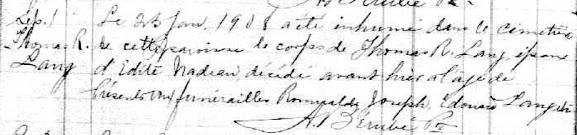 Sép. 1
Thomas R.
Lang
Le 23 Jan. 1908 a été inhumé dans le cimetière
de cette paroisse le corps de Thomas R. Lang époux
d'Edite Nadeau, décédé avant hier a l'âge de
funérailles Romualde, Joseph, Edouard Lang
A. Bérubé Ptr